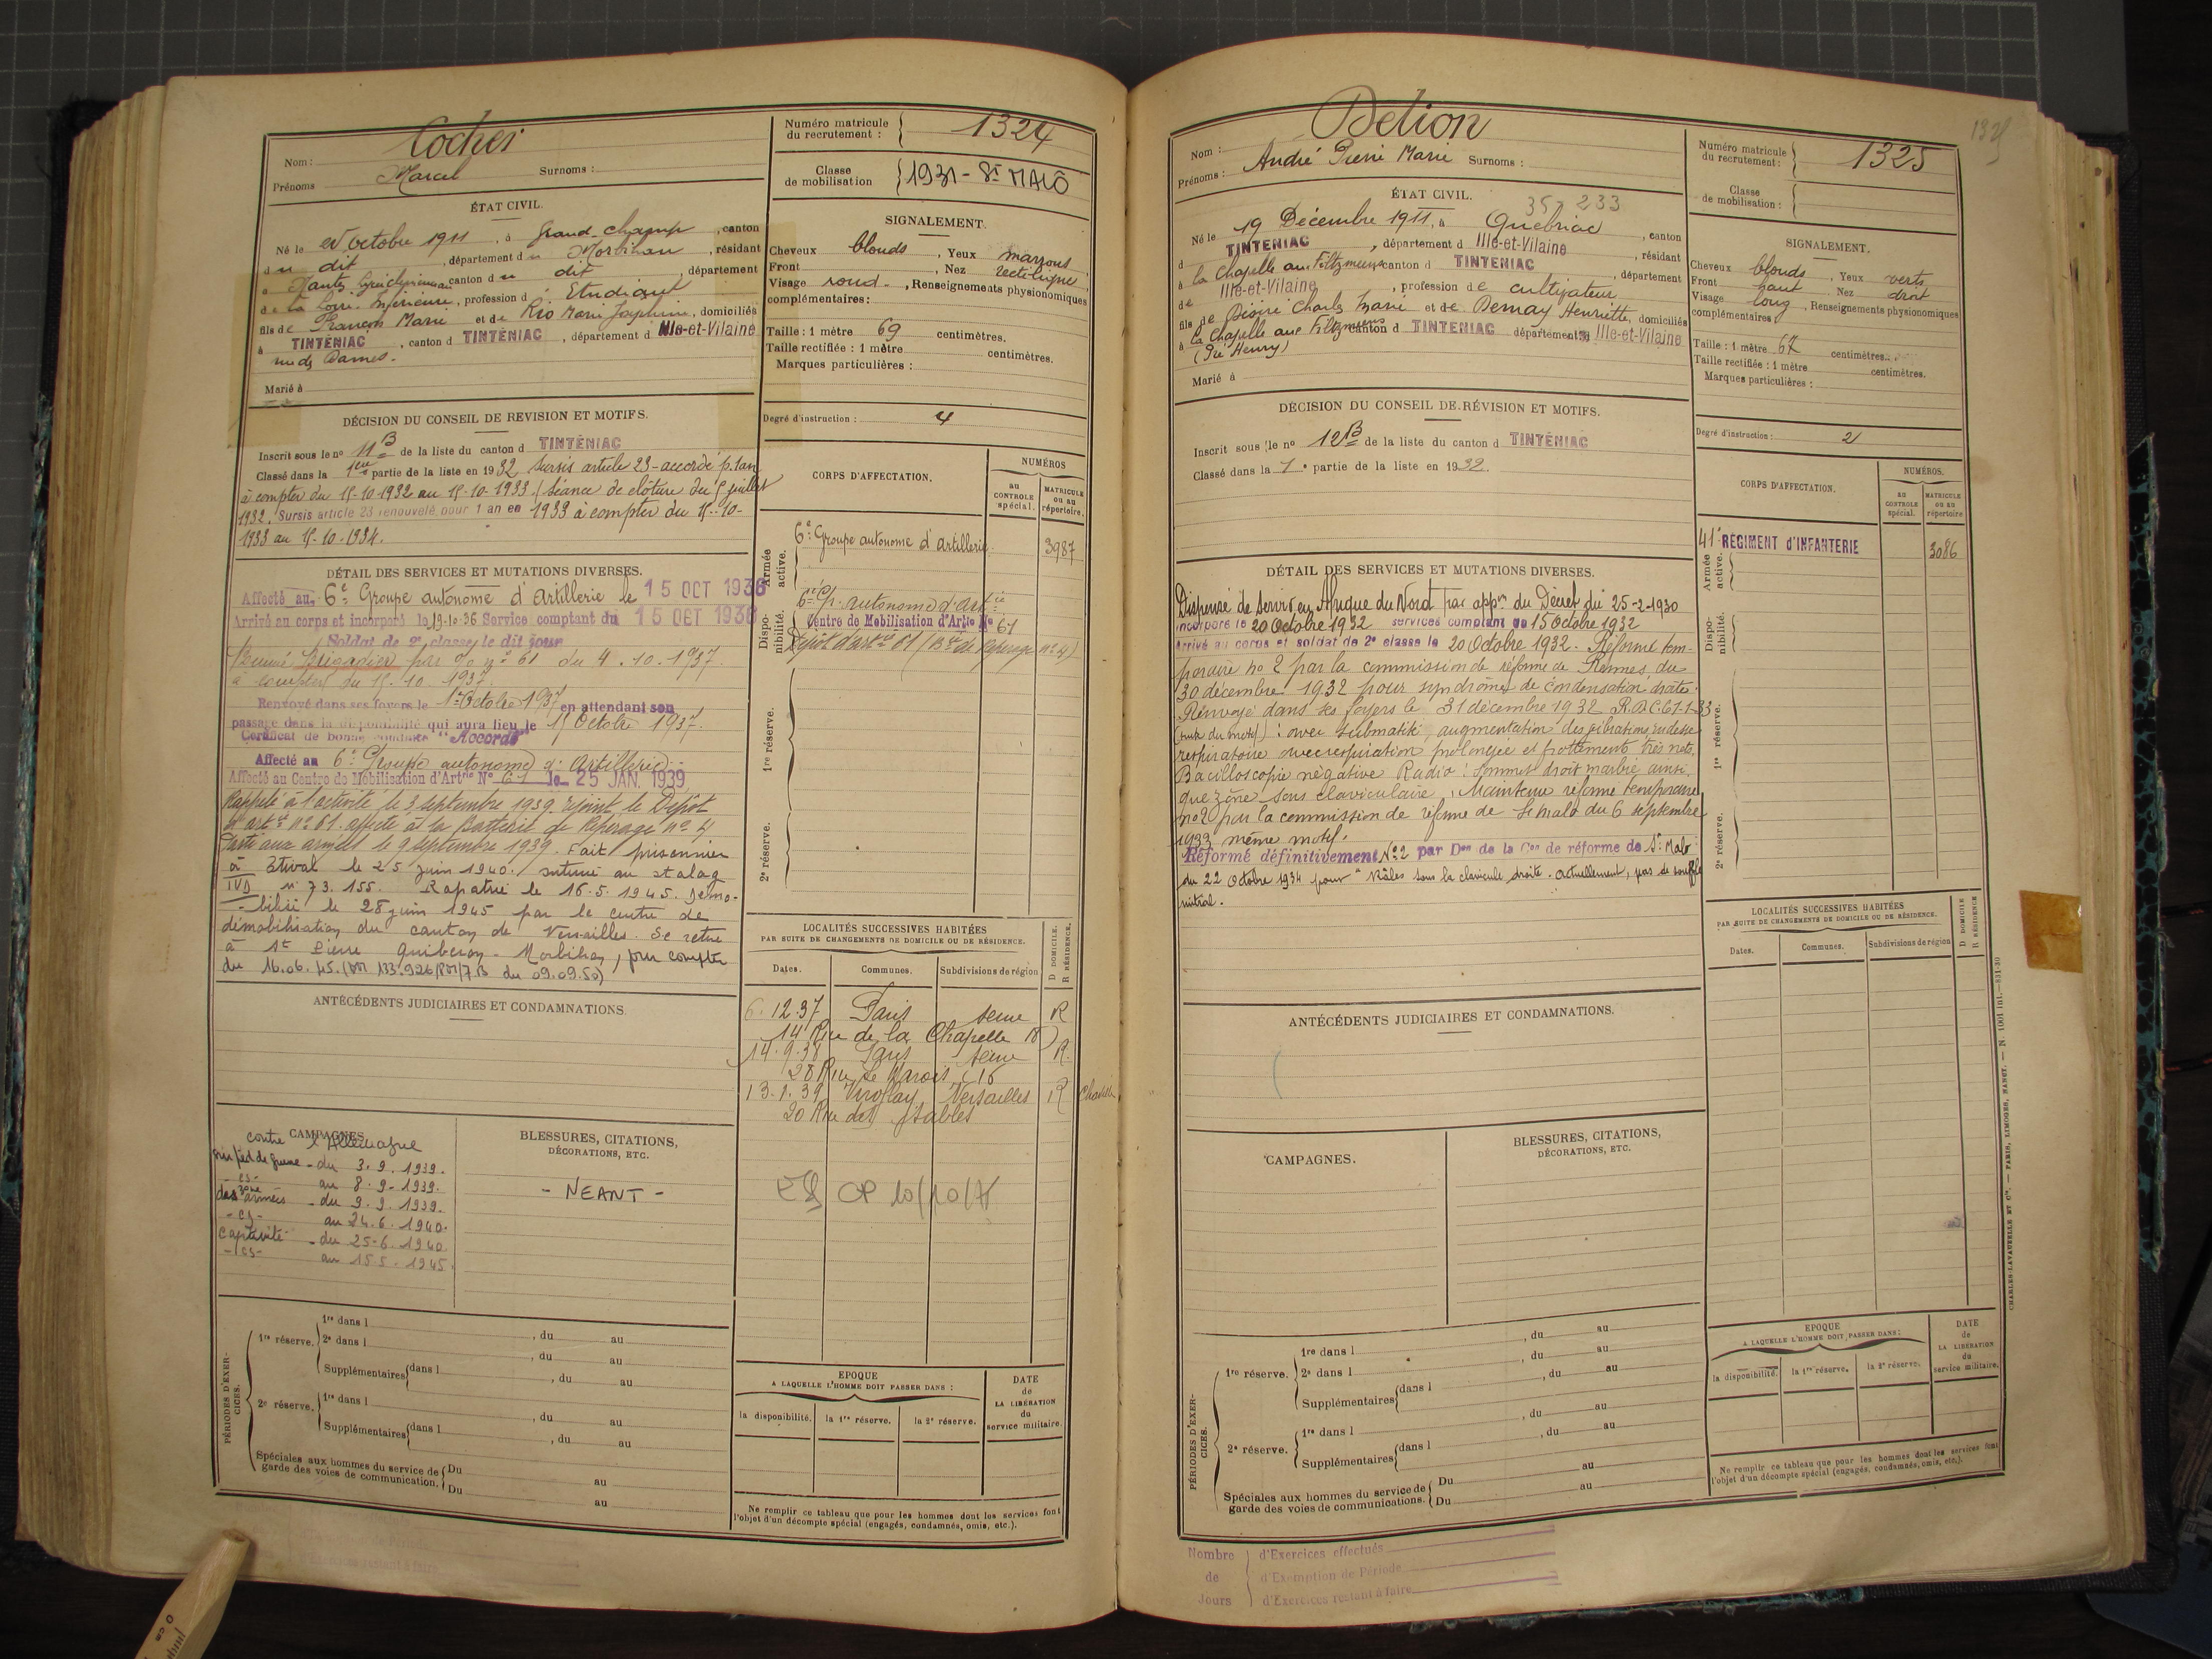 Nom : Cocher
Prénoms Marcel Surnoms :
Numéro matricule du recrutement : 1324
Classe de mobilisation 1931 - St MALÔ
ÉTAT CIVIL.
Né le octobre 1911, à Grand-Champ, canton
du dit, département du Morbihan, résidant
à Nantes canton du dit, département
de la Loire Inférieure, profession d' Etudiant
fils de François Marie et de Rio Marie Joséphine, domiciliés
à TINTÉNIAC, canton d TINTENIAC, département d Ille-et-Vilaine
rue des Dames.
Marié à
SIGNALEMENT.
Cheveux blonds, Yeux marrons
Front , Nez rectiligne
Visage rond, Renseignements physionomiques
complémentaires :
Taille : 1 mètre 69 centimètres.
Taille rectifiée : 1 mètre centimètres.
Marques particulières :
Degré d'instruction : 4
DÉCISION DU CONSEIL DE REVISION ET MOTIFS.
Inscrit sous le no 11 B de la liste du canton d TINTÉNIAC
Classé dans la 1ère partie de la liste en 1932 Sursis article 23 - accordé p. 1 an
à compter du 15-10-1932 au 15-10-1933 (Séance de clôture du 5 juillet
1932. Sursis article 23 renouvelé pour 1 an en 1933 à compter du 15-10-
1933 au 15-10-1934.
CORPS D'AFFECTATION.
NUMÉROS
au CONTROLE spécial.
MATRICULE ou au répertoire.
Armée active.
6e Groupe autonome d'artillerie 3987
Disponibilité.
6e Gp. autonome d'artie
Centre de Mobilisation d'Artie No 61
Dépôt d'artie 61 (Bie de repérage no 4)
1re réserve.
2e réserve.
DÉTAIL DES SERVICES ET MUTATIONS DIVERSES.
Affecté au 6e Groupe autonome d'Artillerie le 15 OCT 1936
Arrivé au corps et incorporé le 19-10-36 Service comptant du 15 OCT 1936
Soldat de 2e classe le dit jour
Nommé Brigadier par O no 61 du 4.10.1937.
à compter du 15.10.1937.
Renvoyé dans ses foyers le 1er Octobre 1937 en attendant son
passage dans la disponibilité qui aura lieu le 15 Octobre 1937.
Certificat de bonne conduite "Accordé"
Affecté au 6e Groupe autonome d'Artillerie
Affecté au Centre de Mobilisation d'Artie No 61 le 25 JAN. 1939
Rappelé à l'activité le 3 septembre 1939. rejoint le Dépôt
d'artie no 61. affecté à la Batterie de Repérage no 4
Parti aux armées le 9 septembre 1939. Fait prisonnier
à Etival le 25 juin 1940. interné au stalag
IV D no 73.155. Rapatrié le 16.5.1945. Démo-
bilisé le 28 juin 1945 par le centre de
démobilisation du canton de Versailles. Se retire
à St Pierre Quiberon - Morbihan, pour compter
du 16.06.45.
ANTÉCÉDENTS JUDICIAIRES ET CONDAMNATIONS.
LOCALITÉS SUCCESSIVES HABITÉES
PAR SUITE DE CHANGEMENTS DE DOMICILE OU DE RÉSIDENCE.
D DOMICILE. R RÉSIDENCE.
Dates. Communes. Subdivisions de région
6.12.37 Paris Seine R
14 Rue de la Chapelle 18)
14.9.38 Paris Seine R.
28 Rue Le Marois (16
13.1.39 Viroflay Versailles R
20 Rue des Sables
CAMPAGNES.
contre l'Allemagne
sur pied de guerre - du 3.9.1939.
au 8.9.1939.
zone des armées - du 9.9.1939.
au 24.6.1940.
Captivité - du 25-6.1940
au 15.5.1945.
BLESSURES, CITATIONS,
DÉCORATIONS, ETC.
- NEANT -
PÉRIODES D'EXERCICES.
1re réserve. 1re dans l , du au
2e dans l , du au
Supplémentaires dans l , du au
2e réserve. 1re dans l , du au
Supplémentaires dans l , du au
Spéciales aux hommes du service de garde des voies de communication. Du au
Du au
EPOQUE
A LAQUELLE L'HOMME DOIT PASSER DANS :
la disponibilité. la 1re réserve. la 2e réserve.
DATE de LA LIBÉRATION du service militaire.
Ne remplir ce tableau que pour les hommes dont les services font
l'objet d'un décompte spécial (engagés, condamnés, omis, etc.).
1325
Nom : Delion
Prénoms : André Pierre Marie Surnoms :
Numéro matricule du recrutement : 1325
Classe de mobilisation :
ÉTAT CIVIL.
35-233
Né le 19 Décembre 1911, à Québriac, canton
d TINTENIAC, département d Ille-et-Vilaine, résidant
à la Chapelle aux Filtzmeens canton d TINTENIAC, département
de Ille-et-Vilaine, profession de cultivateur
fils de Désiré Charles Marie et de Demay Henriette, domiciliés
à la Chapelle aux Filtzmeens canton d TINTENIAC département d Ille-et-Vilaine
(Pré Henry)
Marié à
SIGNALEMENT.
Cheveux blonds, Yeux verts
Front haut Nez droit
Visage long, Renseignements physionomiques
complémentaires
Taille : 1 mètre 67 centimètres.
Taille rectifiée : 1 mètre centimètres.
Marques particulières :
Degré d'instruction : 2
DÉCISION DU CONSEIL DE RÉVISION ET MOTIFS.
Inscrit sous le no 12 B de la liste du canton d TINTÉNIAC
Classé dans la 1e partie de la liste en 1932.
CORPS D'AFFECTATION.
NUMÉROS.
au CONTROLE spécial.
MATRICULE ou au répertoire
Armée active.
41e RÉGIMENT D'INFANTERIE 3086
Disponibilité.
1re réserve.
2e réserve.
DÉTAIL DES SERVICES ET MUTATIONS DIVERSES.
Dispensé de servir en Afrique du Nord par appon du Décret du 25-2-1930
Incorporé le 20 Octobre 1932 services comptant du 15 Octobre 1932
Arrivé au corps et soldat de 2e classe le 20 Octobre 1932. Réformé tem-
poraire no 2 par la commission de réforme de Rennes du
30 décembre 1932 pour syndrôme de condensation droite.
Renvoyé dans ses foyers le 31 décembre 1932
(suite du motif) : avec submatité, augmentation des vibrations, rudesse
respiratoire avec expiration prolongée et frottements très nets.
Bacilloscopie négative Radio : sommet droit marbré ainsi
que zône sous claviculaire. Maintenu réformé temporaire
no 2 par la commission de réforme de St Malo du 6 septembre
1933 même motif.
Réformé définitivement No 2 par Don de la Con de réforme de St Malo
du 22 Octobre 1934 pour "Râles sous la clavicule droite. actuellement, pas de souffle
mitral.
ANTÉCÉDENTS JUDICIAIRES ET CONDAMNATIONS.
LOCALITÉS SUCCESSIVES HABITÉES
PAR SUITE DE CHANGEMENTS DE DOMICILE OU DE RÉSIDENCE.
D DOMICILE R RÉSIDENCE
Dates. Communes. Subdivisions de région
CAMPAGNES.
BLESSURES, CITATIONS,
DÉCORATIONS, ETC.
PÉRIODES D'EXERCICES.
1re réserve. 1re dans l , du au
2e dans l , du au
Supplémentaires dans l , du au
2e réserve. 1re dans l , du au
Supplémentaires dans l , du au
Spéciales aux hommes du service de garde des voies de communications. Du au
Du au
EPOQUE
A LAQUELLE L'HOMME DOIT PASSER DANS :
la disponibilité. la 1re réserve. la 2e réserve.
DATE de LA LIBÉRATION du service militaire.
Ne remplir ce tableau que pour les hommes dont les services font
l'objet d'un décompte spécial (engagés, condamnés, omis, etc.).
CHARLES-LAVAUZELLE ET Cie. — PARIS, LIMOGES, NANCY. — N. 1001 int.—831-30
Nombre de Jours
d'Exercices effectués
d'Exemption de Période
d'Exercices restant à faire